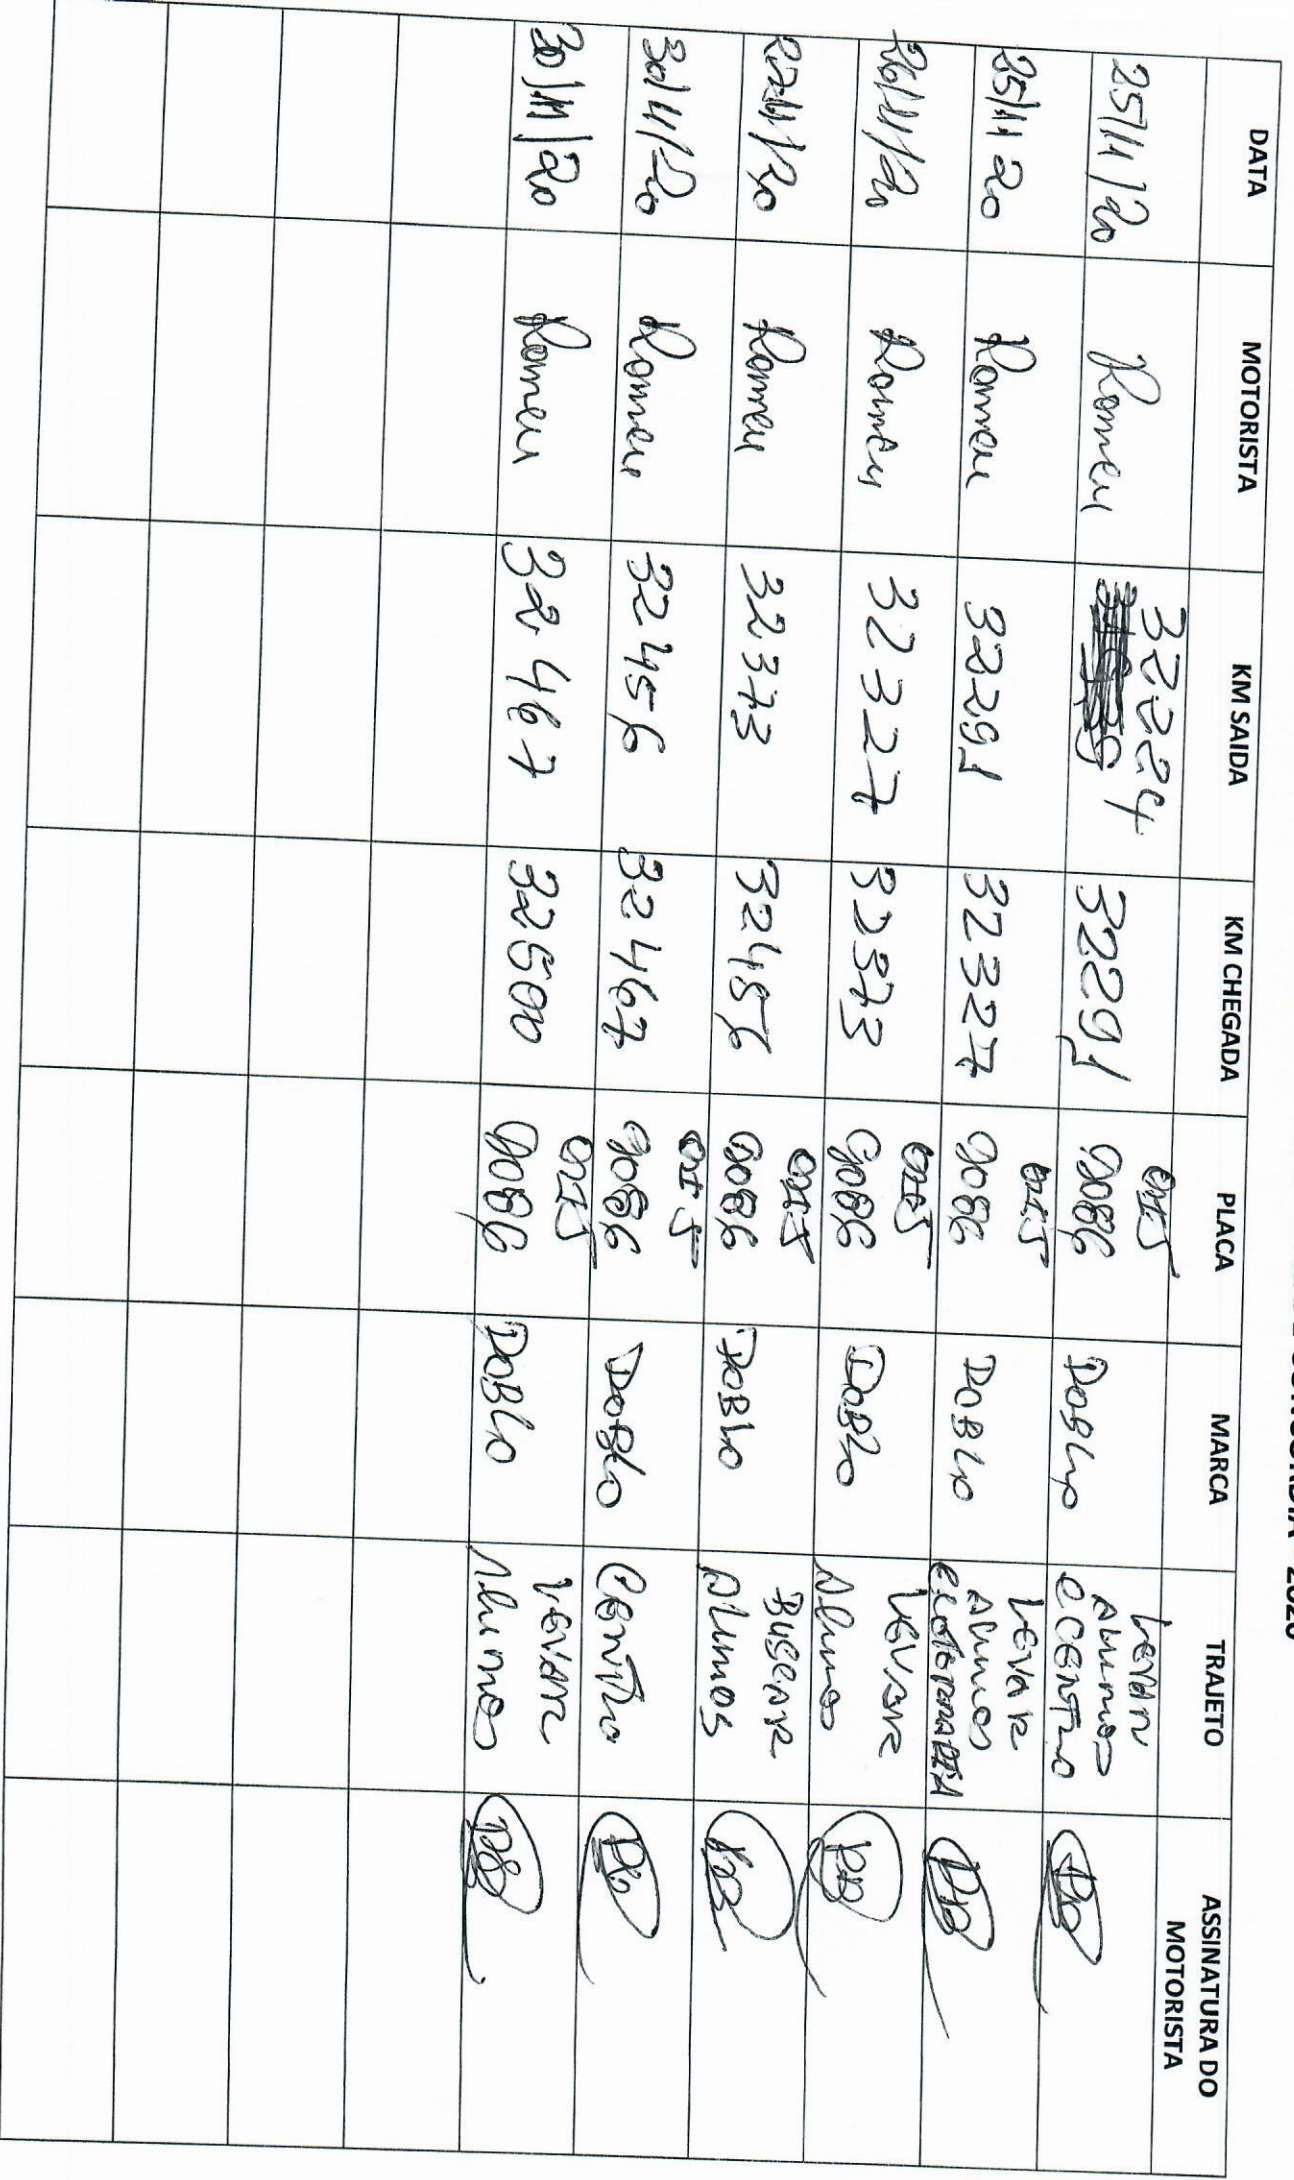 DATA MOTORISTA KM SAIDA KM CHEGADA PLACA MARCA TRAJETO ASSINATURA DO MOTORISTA
25/11/20 Romeu 32224 32291 9086 DOBLO Levar Alunos e CENTRO
25/11 20 Romeu 32291 32327 9086 DOBLO LEVAR Alunos
26/11/20 Romeu 32327 32373 9086 DOBLO LEVAR Alunos
27/11/20 Romeu 32373 32456 9086 DOBLO BUSCAR ALUNOS
30/11/20 Romeu 32456 32467 9086 DOBLO CENTRO
30/11/20 Romeu 32467 32500 9086 DOBLO LEVAR Alunos